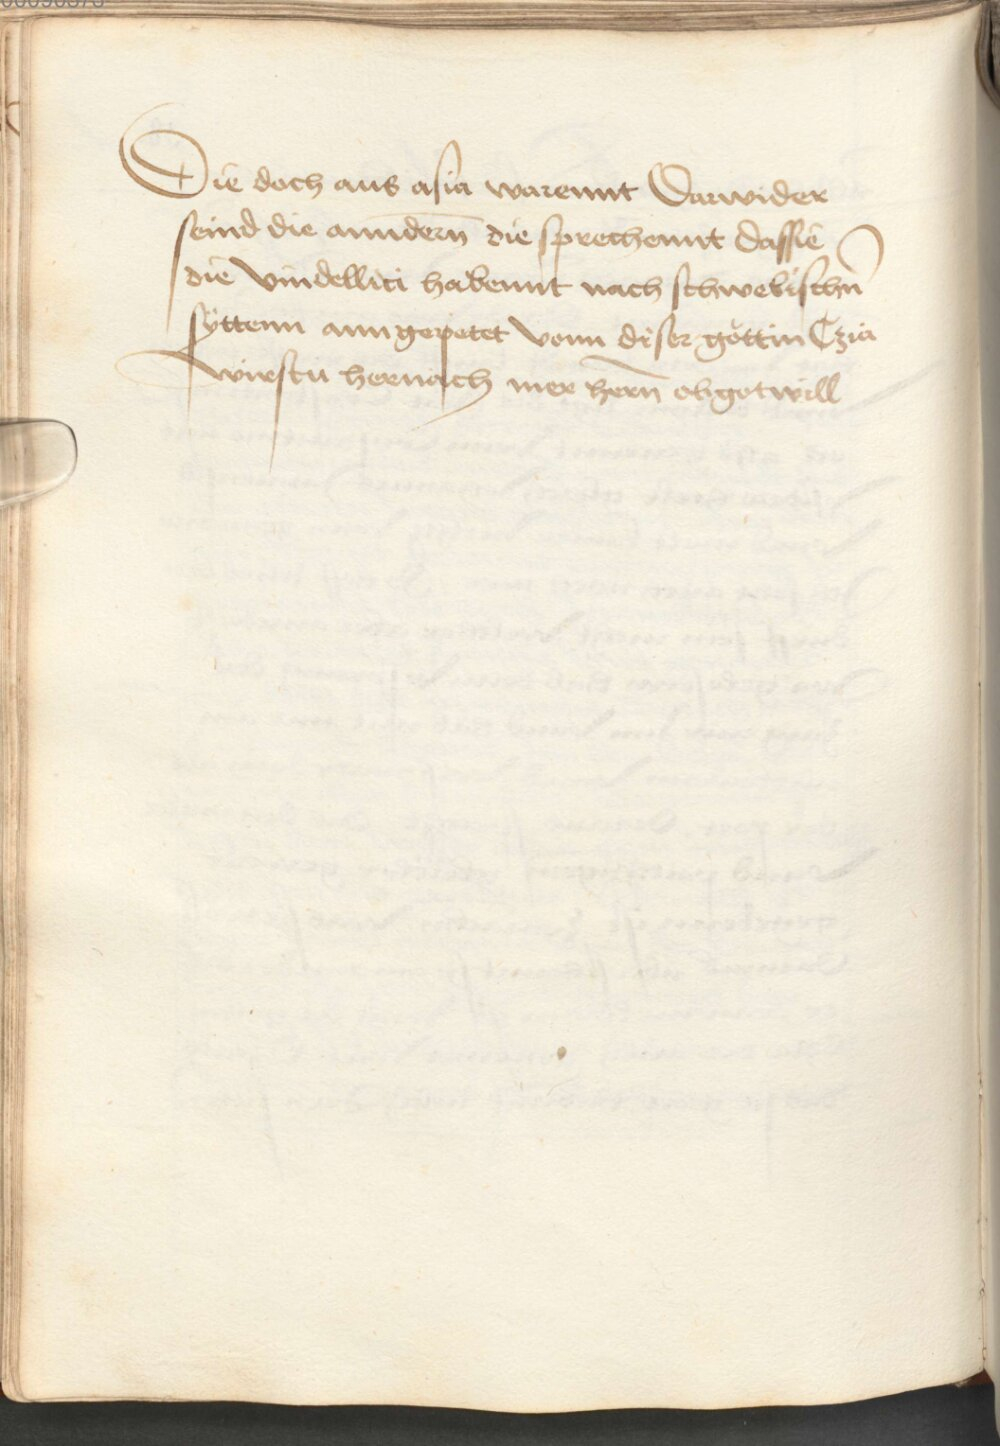 Die doch aus asia warennt Darwider
seind die anndern̄ die sprechennt dassie
die vindellici habennt nach schwebischn̄
sÿttenn anngepetet vonn diser göttin Czia
wirstu hernach mer hern̄ ob got will